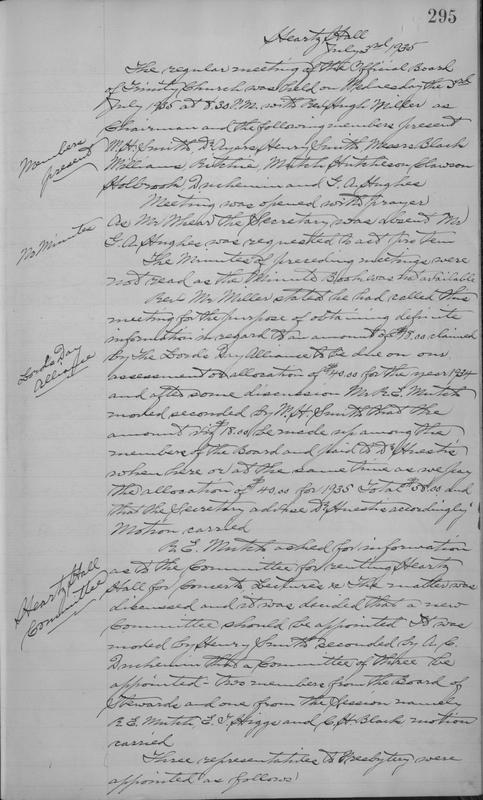 295
Heartz Hall
July 3rd 1935
The regular meeting of the Official Board
of Trinity Church was held on Wednesday the 3rd
July 1935 at 8.30 P.M. with Rev Hugh Miller as
Chairman and the following members present
Members present
W.H. Smith Dr Ayers Henry Smith Messrs Black
Williams Mutch Hutcheson Clawson
Holbrook, Duchemin and G. A. Hughes
Meeting was opened with prayer
No Minutes
As Mr the Secretary was absent Mr
G. A. Hughes was requested to act pro tem
The Minutes of preceding meetings were
not read as the Minute Book was not available
Rev Mr Miller stated he had called this
meeting for the purpose of obtaining definite
information in regard to an amount of $18.00 claimed
Lord's Day Alliance
by the Lord's Day Alliance to be due on our
assessment or allocation of $40.00 for the year 1934
and after some discussion Mr R.E. Mutch
moved seconded by W.H. Smith that the
amount viz $18.00 be made up among the
members of the Board and paid to Dr Huestis
when here or at the same time as we pay
the allocation of $40.00 for 1935 Total $58.00 and
that the Secretary advise Dr Huestis accordingly
Motion carried
R.E. Mutch asked for information
Heartz Hall Committee
as to the Committee for renting Heartz
Hall for Concerts Lectures &c The matter was
discussed and it was decided that a new
Committee should be appointed It was
moved by Henry Smith seconded by A. C.
Duchemin that a Committee of three be
appointed - two members from the Board of
Stewards and one from the Session namely
R.E. Mutch, E. T. Higgs and C. H. Black motion
carried
Three representatives to Presbytery were
appointed as follows: